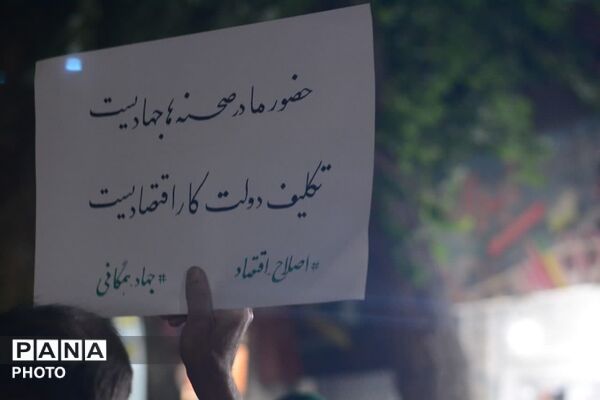 حضور ما در صحنه ها جهادیست
تکلیف دولت کار اقتصادیست
#اصلاح_اقتصاد #جهاد_همگانی
PANA
PHOTO